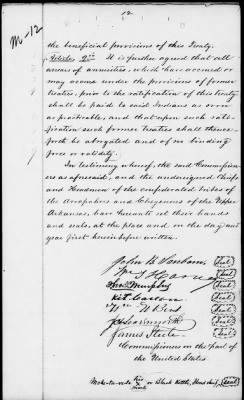 12
M-12
the beneficial provisions of this Treaty.
Article 9th It is further agreed that all
arrears of annuities, which have accrued or
may accrue under the provisions of former
treaties, prior to the ratification of this treaty
shall be paid to said Indians as soon
as practicable, and that upon such rati-
fication such former treaties shall thence-
forth be abrogated and of no binding
force or validity.
In testimony whereof, the said Commission-
ers as aforesaid, and the undersigned Chiefs
and Headmen of the confederated tribes of
the Arrapahoes and Cheyennes of the Upper
Arkansas, have hereunto set their hands
and seals, at the place and on the day and
year first hereinbefore written.
John B Sanborn Seal
Wm S Harney Seal
Jas. Murphy Seal
Kit Carson Seal
Wm W Bent Seal
J H Leavenworth Seal
James Steele Seal
Commissioners on the part of
the United States
Moke-ta-ve-to his X mark or Black Kettle, Head chief Seal